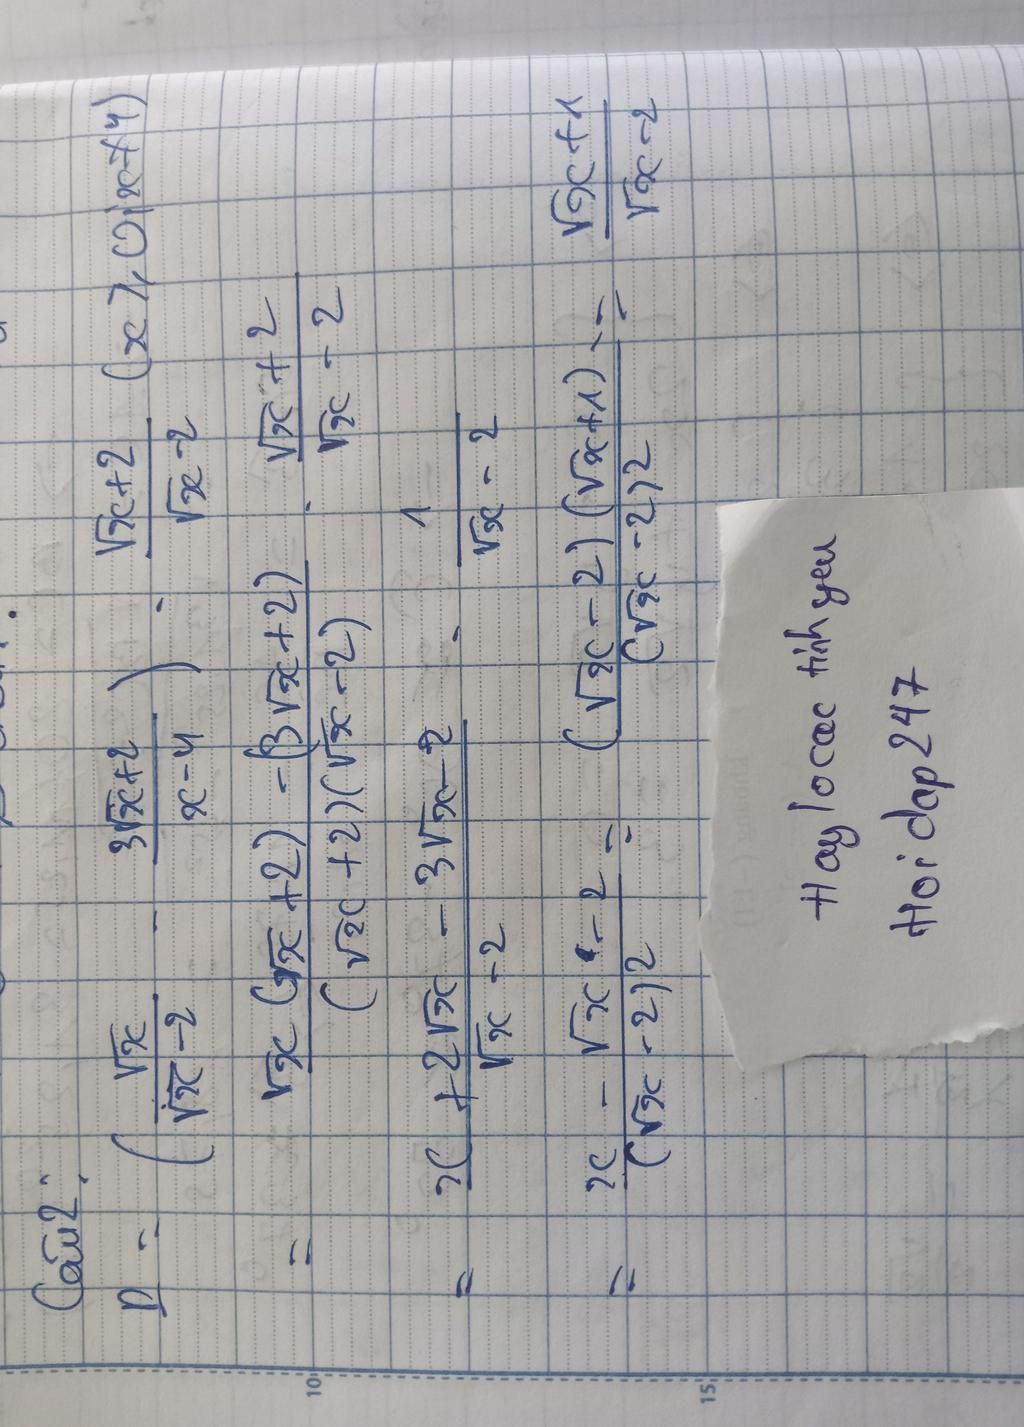 Câu 2:
P = ( √x / (√x - 2) - (3√x + 2) / (x - 4) ) . (√x + 2) / (√x - 2) (x ⩾ 0, x ≠ 4)
= (√x (√x + 2) - (3√x + 2)) / ((√x + 2)(√x - 2)) . (√x + 2) / (√x - 2)
= (x + 2√x - 3√x - 2) / (√x - 2) . 1 / (√x - 2)
= (x - √x - 2) / (√x - 2)² = ((√x - 2)(√x + 1)) / (√x - 2)² = (√x + 1) / (√x - 2)
Haylocac tinhyeu
Hoidap247
10
15